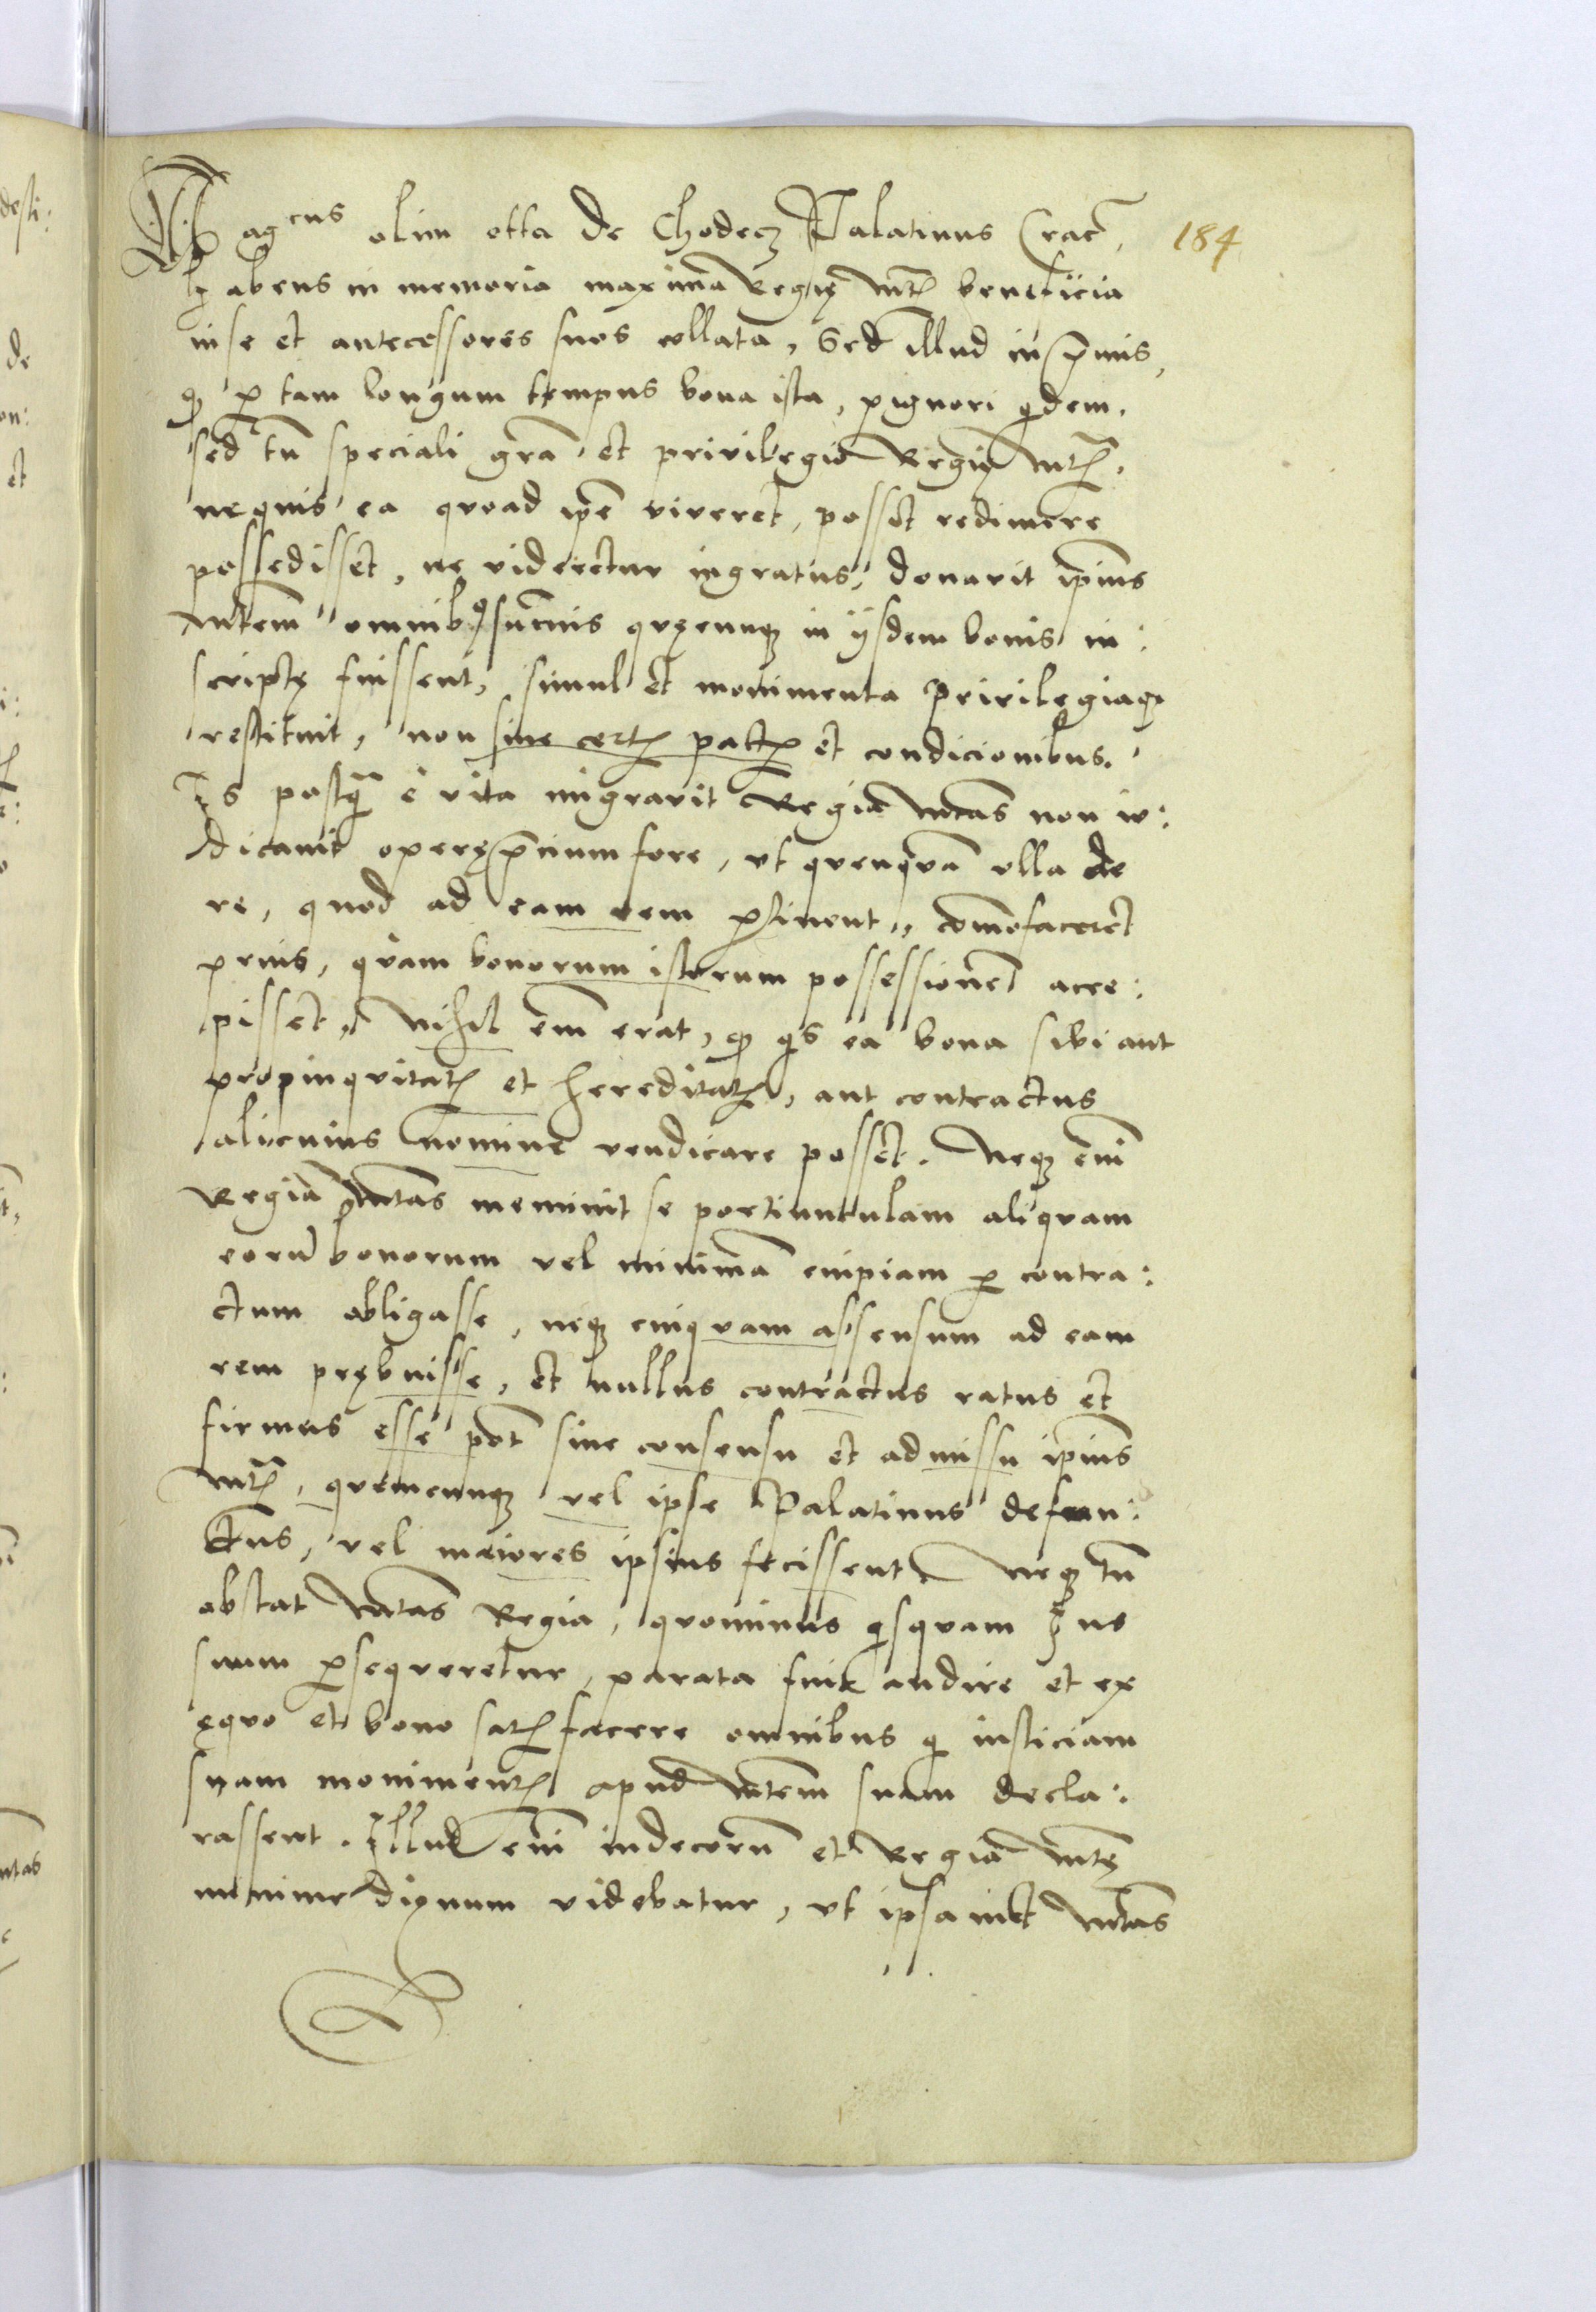 184
Mag^cus olim otta de Chodecz Palatinus Crac̄,
habens in memoria maxima Regię Mt̄ꝭ beneficia
in se et antecessores suos collata, Sed illud in p̄mis,
ꝙ ꝑ tam longum tempus bona ista, pignori qdem,
sed tn̄ speciali gr̄a et privilegio Regię Mt̄ꝭ,
nequis ea quoad ip̄e viveret, posset redimere
possedisset, ne videretur ingratus, donavit ip̄ius
Mtem̄ omnibꝰ sum̄is quęcunqꝫ in ijsdem bonis in:
scriptę fuissent, simul et monimenta privilegiaqꝫ
restituit, non sine certꝭ pactꝭ et condicionibus.
Is postq̄ȝ è vita migravit Regia Mtas̄ non iu:
dicavit operęp̄cium fore, ut quenqva̅ ulla de
re, quod ad eam rem ꝑtinent, com̄ofaceret
prius, quam bonorum istorum possessionem̄ acce:
pisset, Nihil em̄ erat, ꝙ qs ea bona sibi aut
propinquitatꝭ et hereditatꝭ, aut contractus
alicuius nomine vendicare posset. Neqꝫ em̄
Regia Mtas̄ meminit se portiunculam aliquam
eoru̅ bonorum vel minima̅ cuipiam ꝑ contra:
ctum obligasse, neqꝫ cuiquam assensum ad eam
rem prębuisse, et nullus contractus ratus et
firmus esse pot̄ sine consensu et admissu ip̄ius
Mt̄ꝭ, quemcunqꝫ vel ipse Palatinus defun:
ctus, vel maiores ipsius fecissent, Neqꝫ tn̄
obstat Mtas̄ Regia, quominus qsquam Ius
suum ꝑsequeretur, parata fuit audire et ex
ęquo et bono satꝭfacere omnibus q iusticiam
suam monimentꝭ apud Mtem̄ suam decla:
rassent. Illud em̄ indecoru̅ et Regia Mtę̄
minime dignum videbatur, ut ipsa Mtas̄